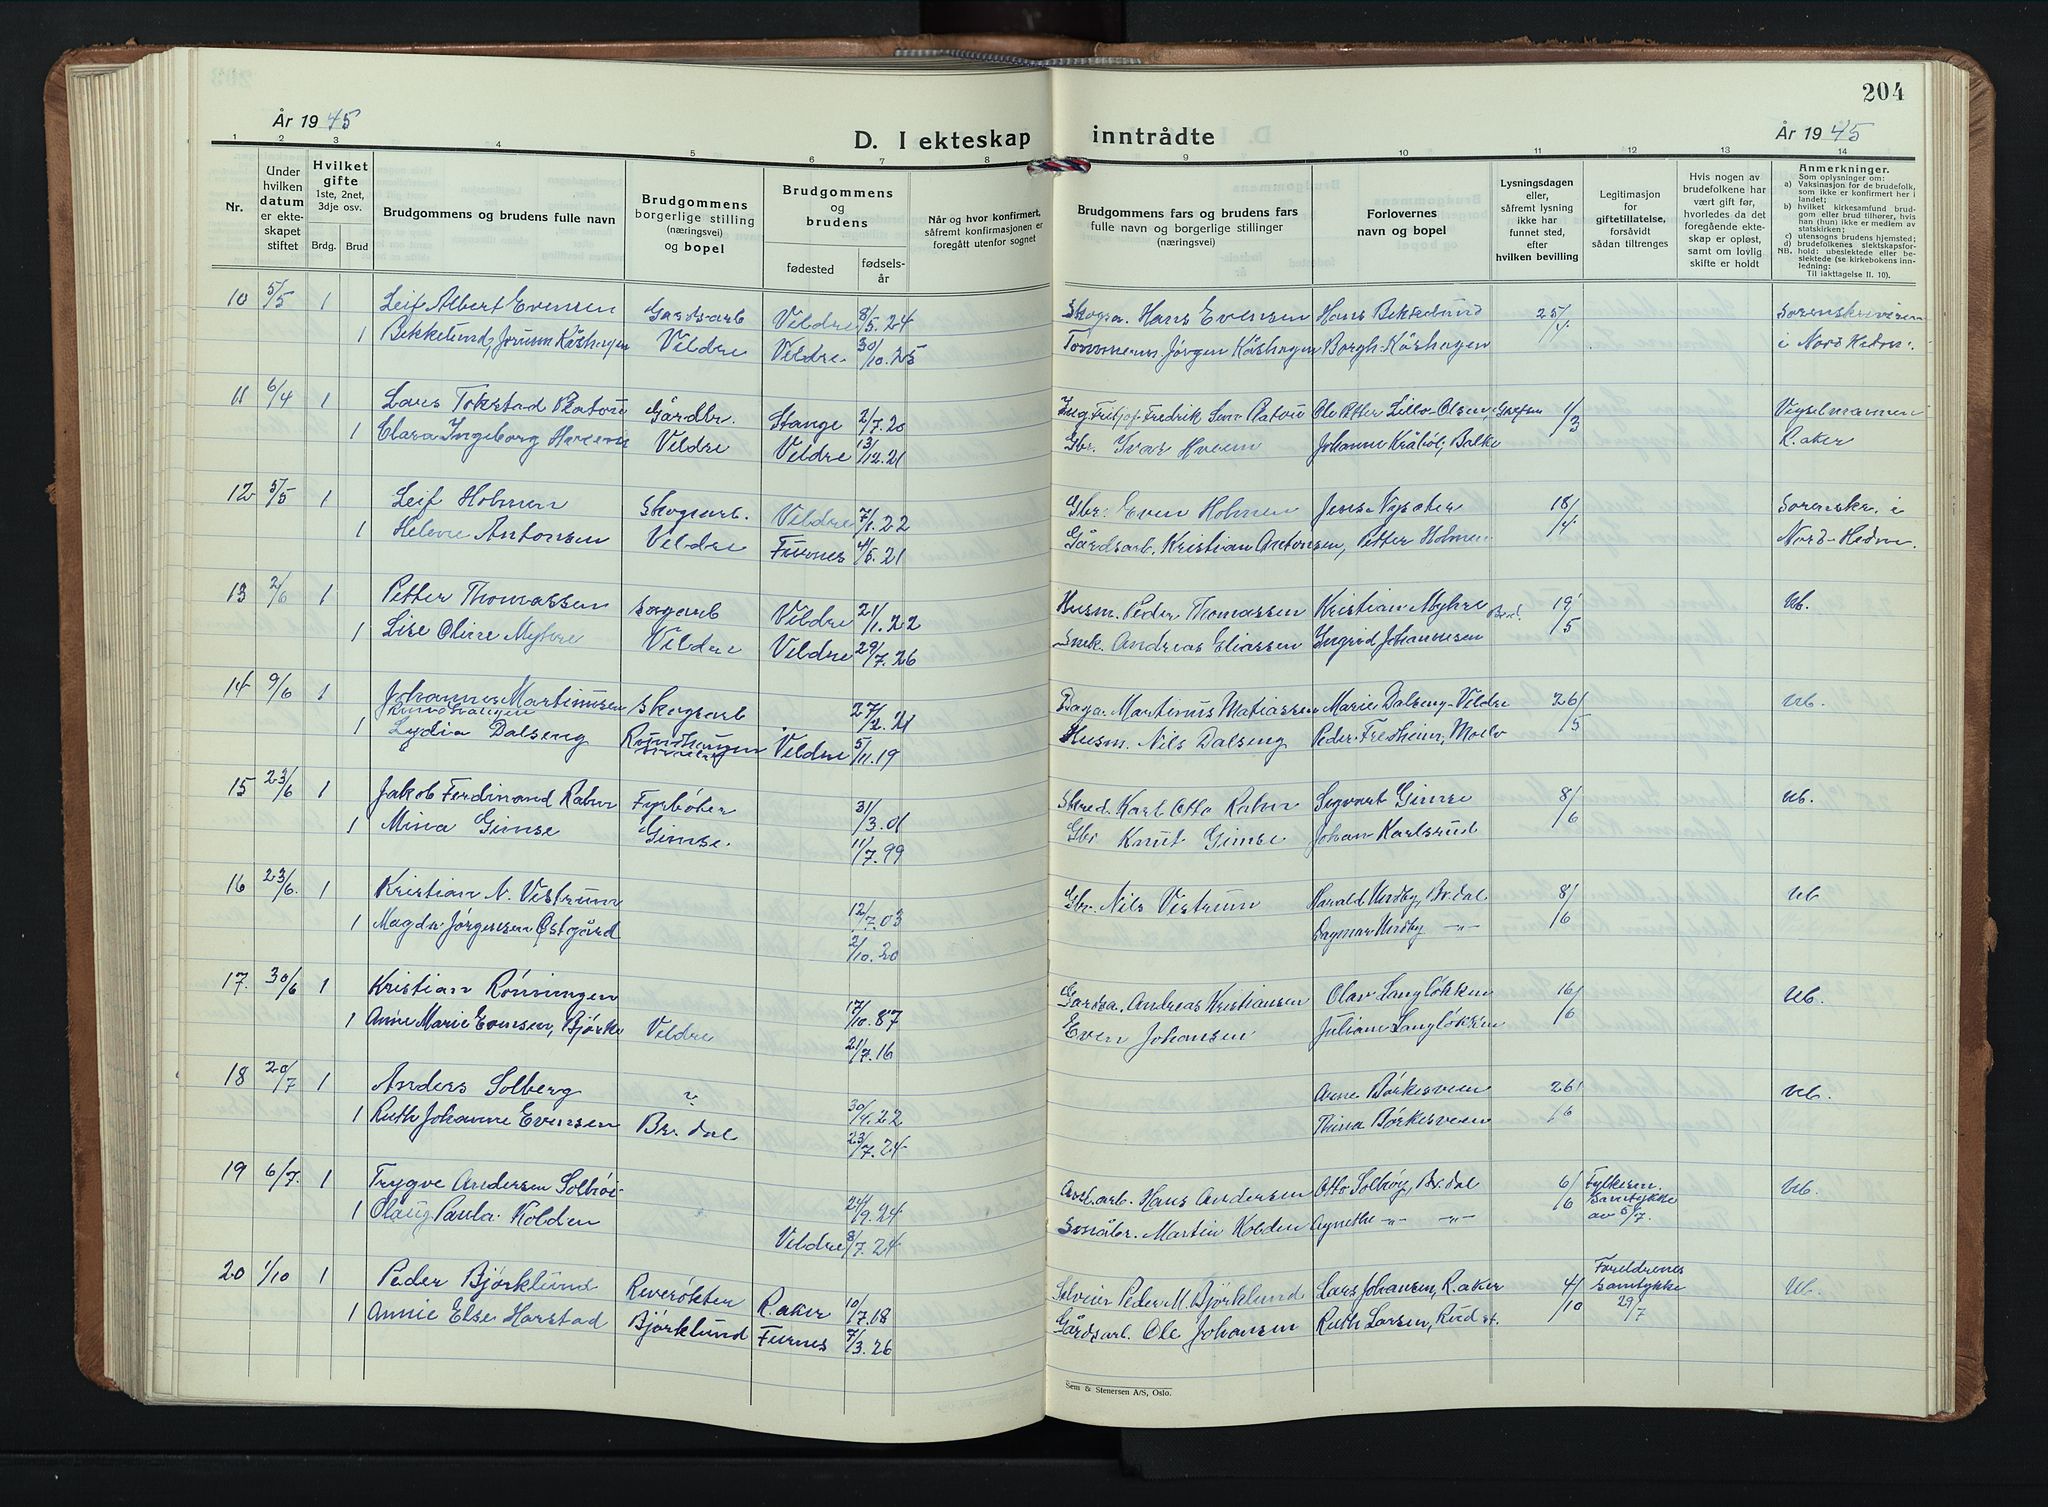 204
År 1945
D. I ekteskap inntrådte
År 1945
1 2 3 4 5 6 7 8 9 10 11 12 13 14
Nr.
Under hvilken datum er ekteskapet stiftet
Hvilket gifte 1ste, 2net, 3dje osv.
Brdg. Brud
Brudgommens og brudens fulle navn
Brudgommens borgerlige stilling (næringsvei) og bopel
Brudgommens og brudens
fødested
fødselsår
Når og hvor konfirmert, såfremt konfirmasjonen er foregått utenfor sognet
Brudgommens fars og brudens fars fulle navn og borgerlige stillinger (næringsvei)
Forlovernes navn og bopel
Lysningsdagen eller, såfremt lysning ikke har funnet sted, efter hvilken bevilling
Legitimasjon for giftetillatelse, forsåvidt sådan tiltrenges
Hvis nogen av brudefolkene har vært gift før, hvorledes da det foregående ekteskap er opløst, samt om lovlig skifte er holdt
Anmerkninger.
Som oplysninger om:
a) Vaksinasjon for de brudefolk, som ikke er konfirmert her i landet;
b) hvilket kirkesamfund brudgom eller brud tilhører, hvis han (hun) ikke er medlem av statskirken;
c) utensogns brudens hjemsted;
d) brudefolkenes slektskapsforhold: ubeslektede eller beslektede (se kirkebokens innledning:
NB. Til iakttagelse II. 10).
10 5/5 1 Leif Albert Evensen Gardsarb Vildre 8/5.24 Skogsa. Hans Evensen Hans Bekkelund 25/4 Sorenskriveren
1 Bekkelund, Jorunn Kåshagen Vildre Vildre 30/10.25 Tømmerm. Jørgen Kåshagen Borgh. Kåshagen i Nord Hedm.
11 6/4 1 Lars Tokstad Gårdbr. Stange 2/7.20 Ole Petter Lillo-Olsen, Grefsen 1/3 Vigselmannen
1 Clara Ingeborg Hveem Vildre Vildre 13/12.21 Gbr. Ivar Hveem Johanne Kråbøl, Balke R.aker
12 5/5 1 Leif Holmen Skogsarb. Vildre 7/1.22 Gbr. Even Holmen Jens Nysæter 18/4 Sorenskr. i
1 Helene Antonsen Vildre Furnes 4/5.21 Gårdsarb. Kristian Antonsen, Petter Holmen Nord-Hedm.
13 2/6 1 Petter Thomassen Sagarb Vildre 21/1.22 Husm. Peder Thomassen Kristian Myhre 19/5 Ub.
1 Lise Oline Myhre Vildre Vildre 29/7.26 Snik. Andreas Eliassen Ingrid Johannesen
14 9/6 1 Johannes Martinusen Skogsarb 27/2.21 Martinus Matiassen Marie Dalseng, Vildre 26/5 Ub.
1 Lydia Dalseng Vildre 5/11.19 Husm. Nils Dalseng Peder Fredheim, Moelv
15 23/6 1 Jakob Ferdinand Rahn Fyrbøter 31/3.01 Skred. Karl Otto Rahn Sigvart Gimse 8/6 Ub.
1 Mina Gimse Gimse. 11/7.99 Gbr Knut Gimse Johan Karlsrud
16 23/6. 1 Kristian N. Vestrum 12/7.03 Gbr. Nils Vestrum Harald Undby, Br.dal 8/6 Ub
1 Magda Jørgensen Østgård 2/10.20 Dagmar Undby -"-
17. 30/6 1 Kristian Rønningen 17/10.87 Gardsa. Andreas Kristiansen Olav Langløkken 16/6 Ub.
1 Anne Marie Evensen, Bjørke Vildre 21/7.16 Even Johansen Juliane Langløkken
18 20/7 1 Anders Solberg ? 30/4.22 Arne Børkesveen 26/6 Ub.
1 Ruth Johanne Evensen Br.dal 23/7.24 Thina Børkesveen
19 6/7. 1 Trygve Andersen Solhøi 24/9.24 Anl.arb. Hans Andersen Otto Solhøy, Br.dal 6/6 Fylkesm. Samtykke av 5/7. Ub.
1 Olaug Paula Kolden Vildre 3/7.24 Småbr. Martin Kolden Agnethe -"- -"-
20 1/10 1 Peder Bjørklund Reverøkter R.aker 10/7.18 Peder M. Bjørklund Lars Johansen, R.aker 4/10 Foreldrenes Samtykke 29/7 Ub.
1 Annie Else Harstad Bjørklund Furnes 7/3.26 Gårdsarb. Ole Johansen Ruth Larsen, Rud st.
Sem & Stenersen A/S, Oslo.